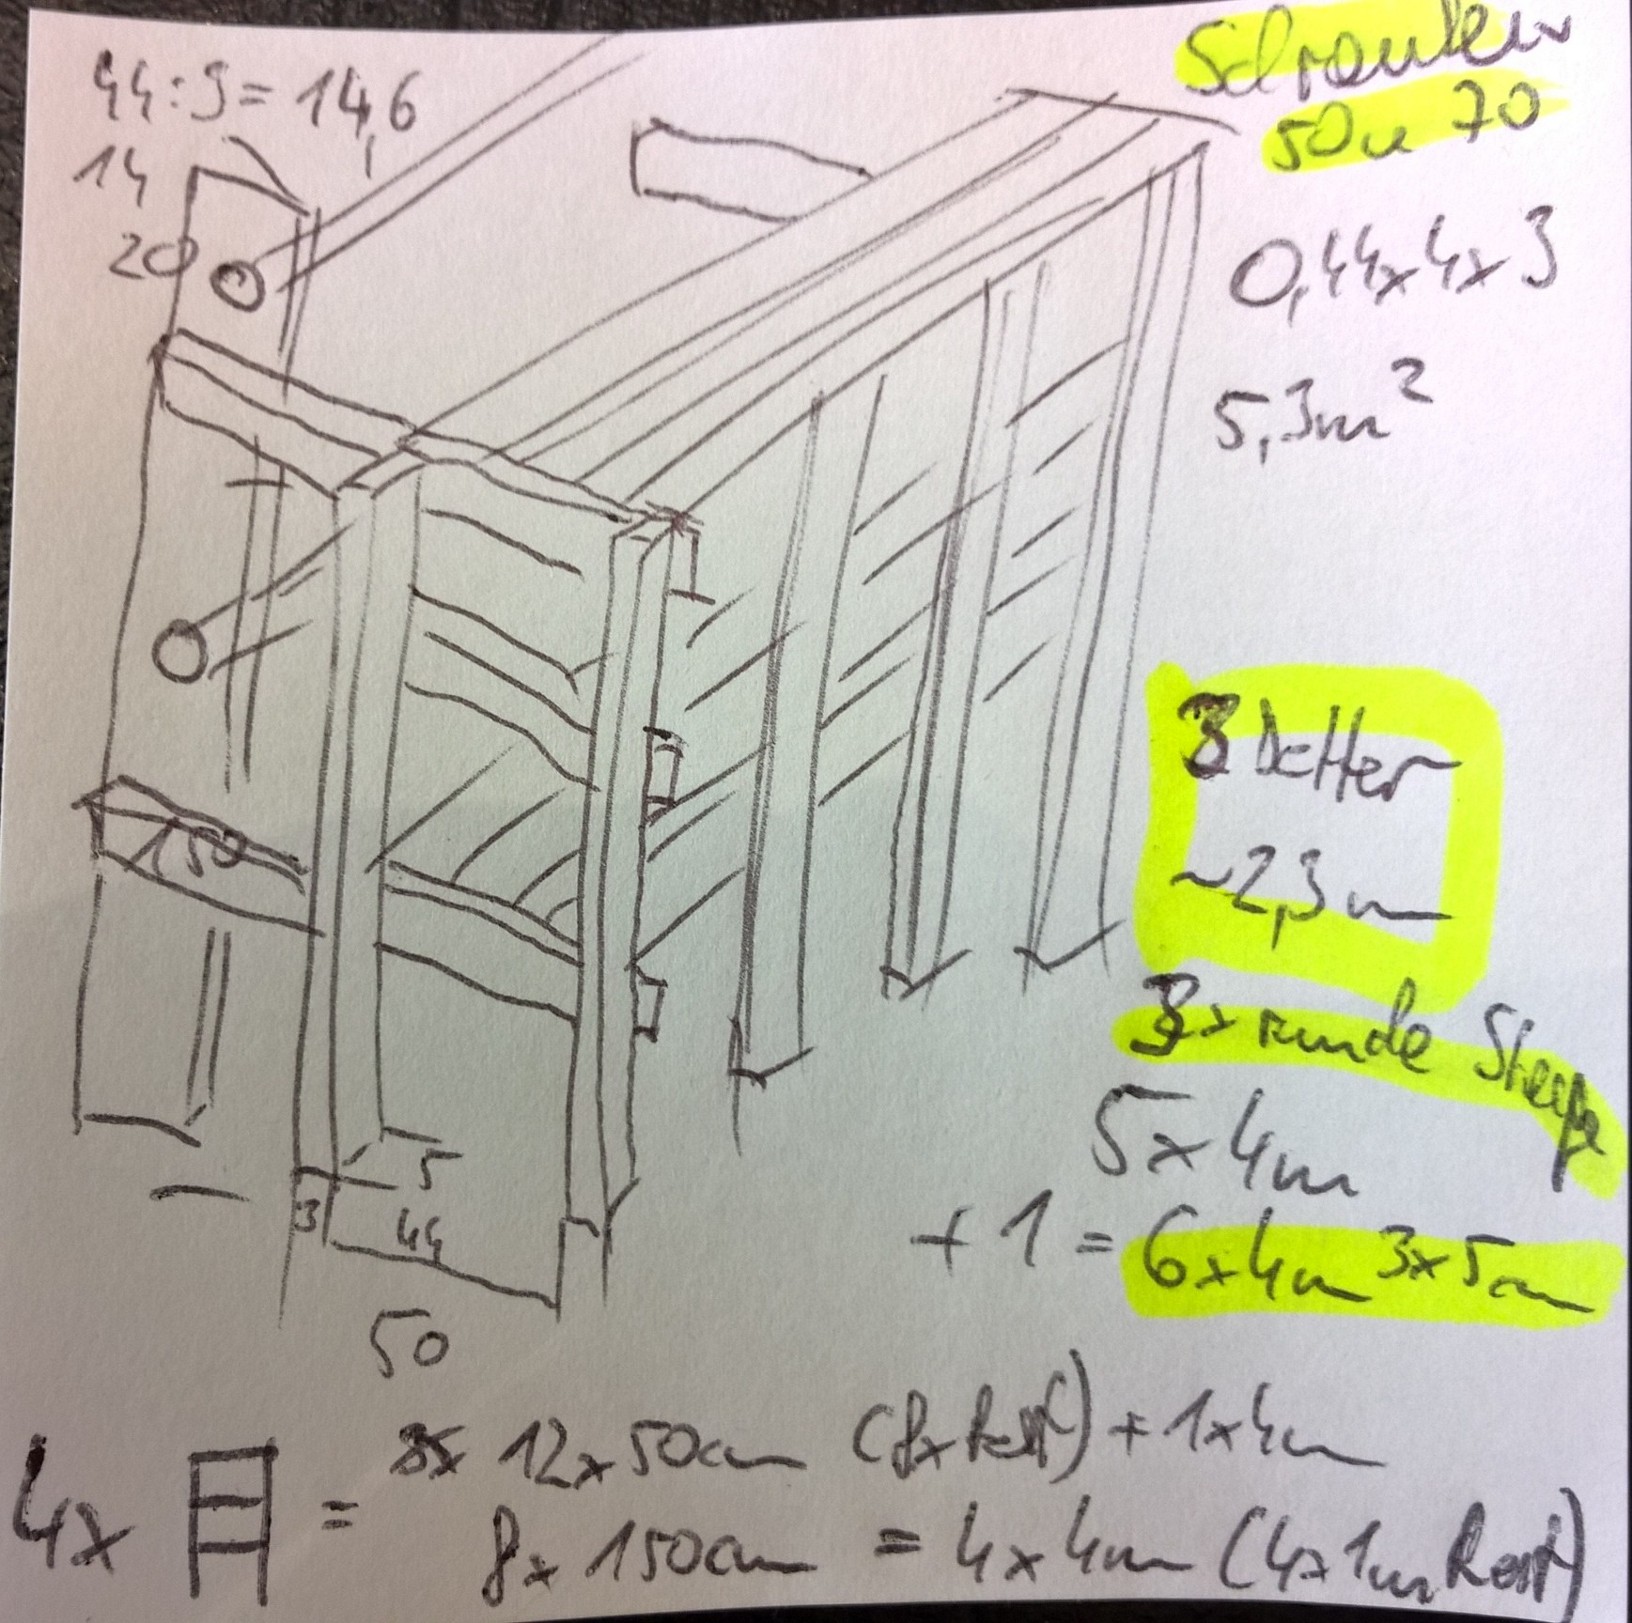 44:3=14,6
14
20
Schrauben
50u 70
0,44x4x3
5,3m²
150
3
~2,3m
3x runde Stege
5x4m
+ 1 = 6x4m 3x5cm
5
3
44
50
4x = 12x50cm (8xRest) + 1x4m
8x 150cm = 4x4m (4x1m Rest)